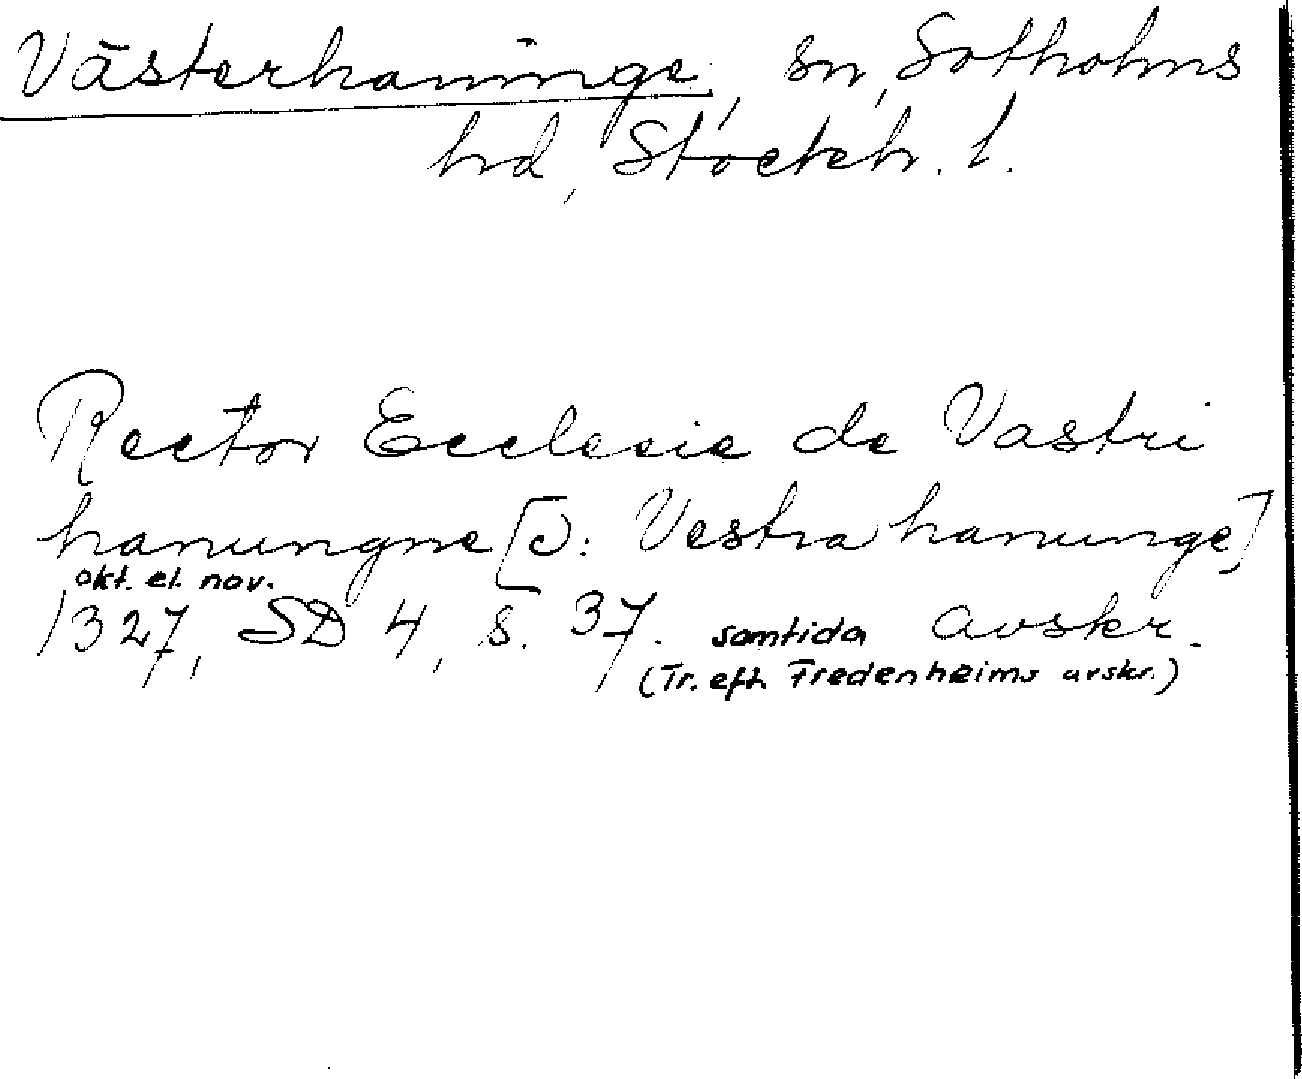 Västerhaninge, sn, Sotholms
hd, Stockh. l.
Rector Ecclesie de Vastri
hanungne [ɔ: Vestra hanunge]
okt. el. nov.
1327, SD 4, s. 37. samtida avskr.
(Tr. eft. Fredenheims avskr.)